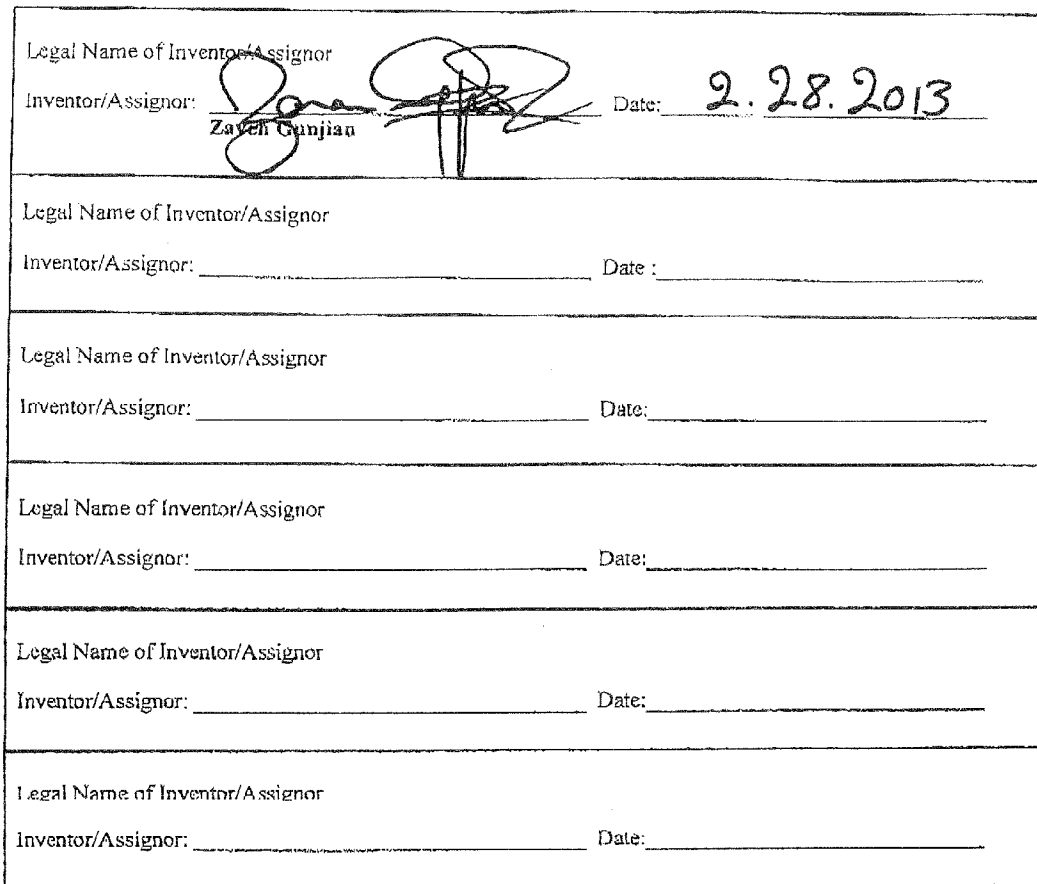 Legal Name of Inventor/Assignor
Inventor/Assignor: Date: 2.28.2013
Zaveh Gunjian
Legal Name of Inventor/Assignor
Inventor/Assignor: Date :
Legal Name of Inventor/Assignor
Inventor/Assignor: Date:
Legal Name of Inventor/Assignor
Inventor/Assignor: Date:
Legal Name of Inventor/Assignor
Inventor/Assignor: Date:
Legal Name of Inventor/Assignor
Inventor/Assignor: Date: